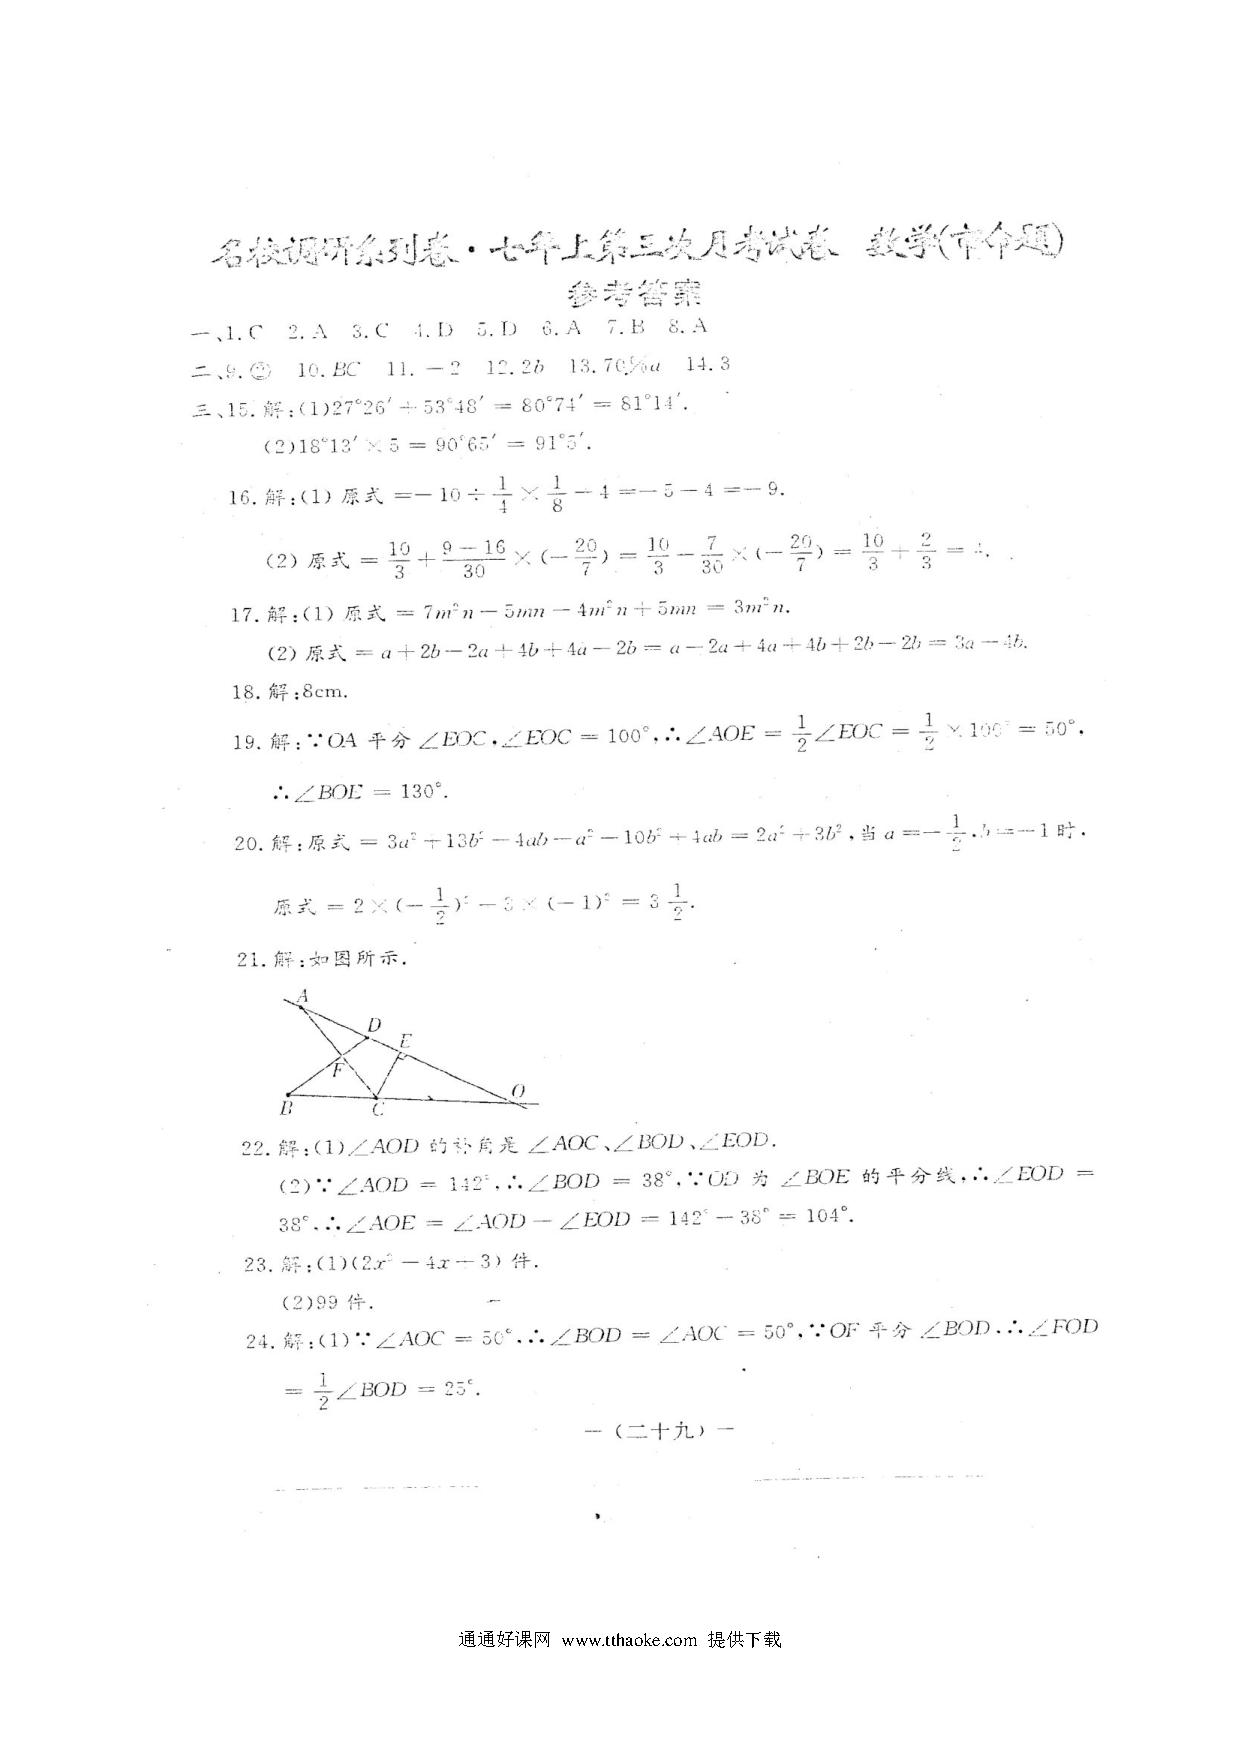 名校调研系列卷·七年上第三次月考试卷 数学(市命题)
参考答案
一、1.C 2.A 3.C 4.D 5.D 6.A 7.B 8.A
二、9.② 10.BC 11.-2 12.2b 13.70%a 14.3
三、15.解:(1)27°26′+53°48′=80°74′=81°14′.
(2)18°13′×5=90°65′=91°5′.
16.解:(1)原式=-10÷1/4×1/8-4=-5-4=-9.
(2)原式=10/3+(9-16)/30×(-20/7)=10/3-7/30×(-20/7)=10/3+2/3=4.
17.解:(1)原式=7m²n-5mn-4m²n+5mn=3m²n.
(2)原式=a+2b-2a+4b+4a-2b=a-2a+4a+4b+2b-2b=3a-4b.
18.解:8cm.
19.解:∵OA平分∠EOC,∠EOC=100°,∴∠AOE=1/2∠EOC=1/2×100°=50°,
∴∠BOE=130°.
20.解:原式=3a²+13b²-4ab-a²-10b²+4ab=2a²+3b²,当a=-1/2,b=-1时,
原式=2×(-1/2)²-3×(-1)²=3 1/2.
21.解:如图所示.
A
D
E
F
O
B
C
22.解:(1)∠AOD的补角是∠AOC、∠BOD、∠EOD.
(2)∵∠AOD=142°,∴∠BOD=38°,∵OD为∠BOE的平分线,∴∠EOD=
38°,∴∠AOE=∠AOD-∠EOD=142°-38°=104°.
23.解:(1)(2x²-4x-3)件.
(2)99件.
24.解:(1)∵∠AOC=50°,∴∠BOD=∠AOC=50°,∵OF平分∠BOD,∴∠FOD
=1/2∠BOD=25°.
—(二十九)—
通通好课网 www.tthaoke.com 提供下载